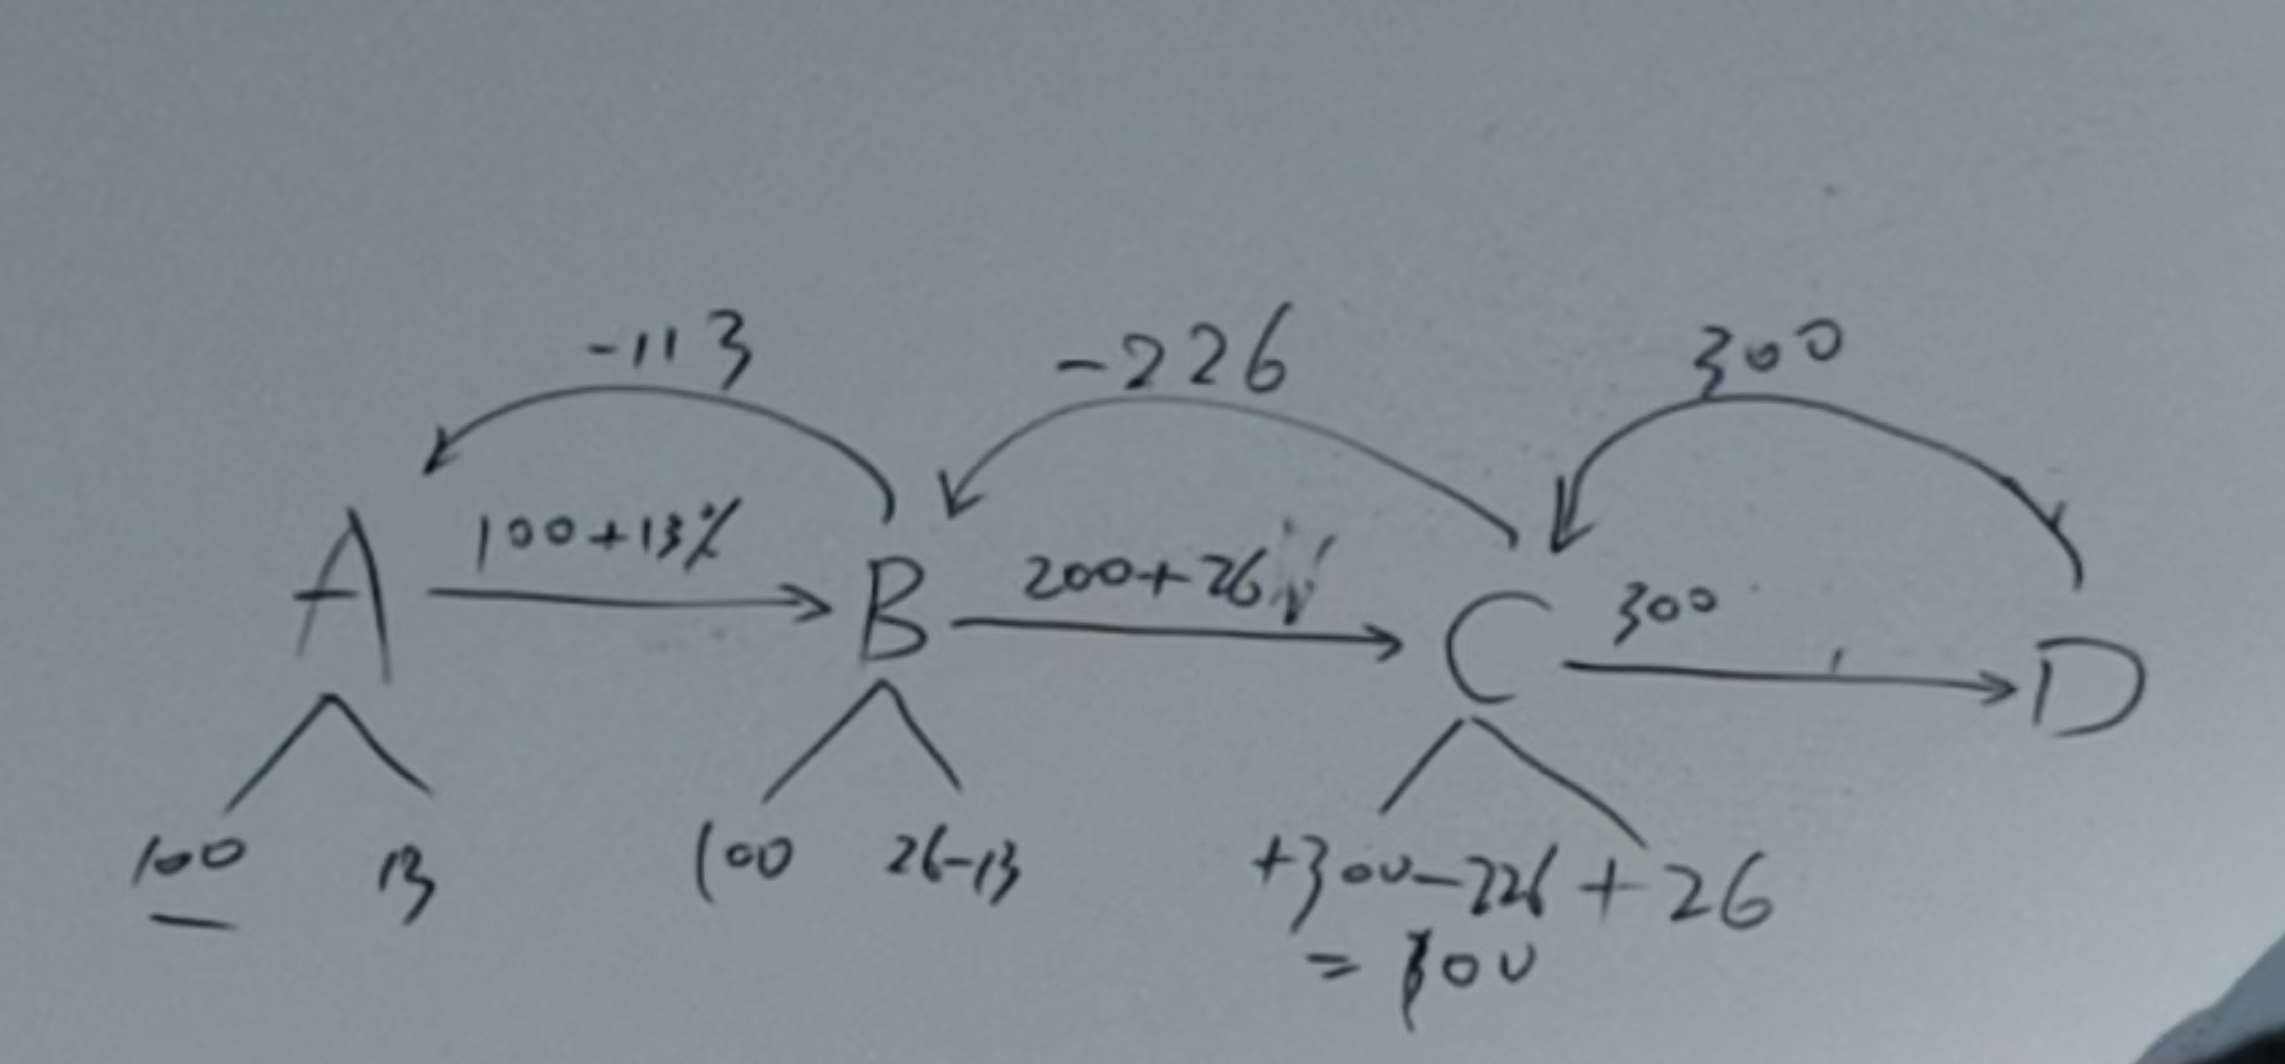 -113 -226 300
100+13% 200+26 300
A B C D
100 13 100 26-13 +300-226+26
=100